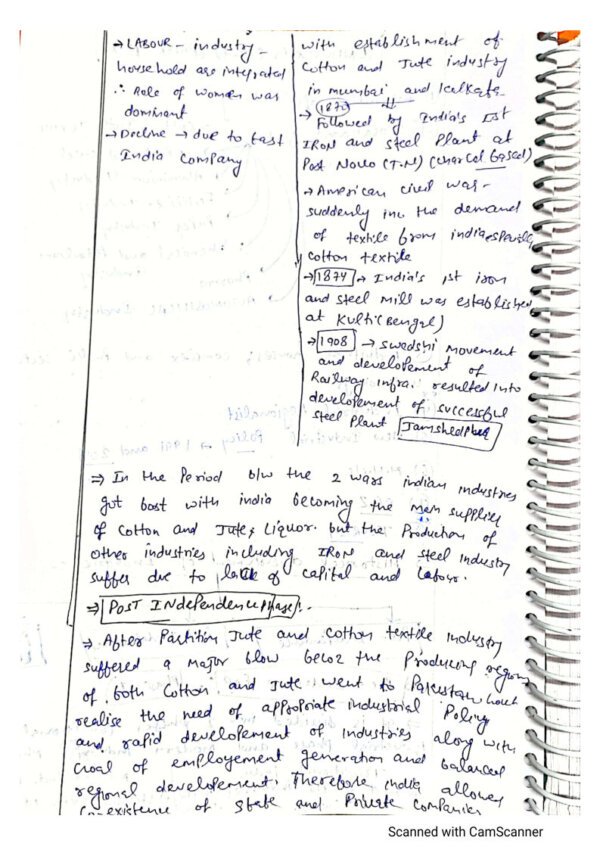 → LABOUR - industry -
household are integrated
∴ Role of women was
dominant
→ Decline → due to East
India Company
with establishment of
Cotton and Jute industry
in mumbai and Kolkata
→ 187
Followed by India's Ist
IRON and steel Plant at
Port Novo (T.N) (charcol based)
→ American civil was -
suddenly inc the demand
of textile from india especially
cotton textile
→ 1874 → India's 1st iron
and steel mill was established
at Kulti (Bengel)
→ 1908 → swedshi movement
and developement of
Railway infra. resulted into
developement of successful
steel Plant Jamshedpur
⇒ In the Period b/w the 2 wars indian industries
got bost with india becoming the main supplier
of cotton and Jute, Liquor. but the Production of
other industries including IRON and steel industry
suffer due to lack of capital and Labour.
⇒ POST INdependence phase :-
→ After Partition Jute and cotton textile industry
suffered a major blow becoz the Producing region
of both cotton and Jute went to Pakistan
realise the need of appropriate industrial Policy
and rapid developement of industries along with
Goal of employement generation and balanced
regional developement. Therefore india allowed
Co-existence of state and Private companies
Scanned with CamScanner